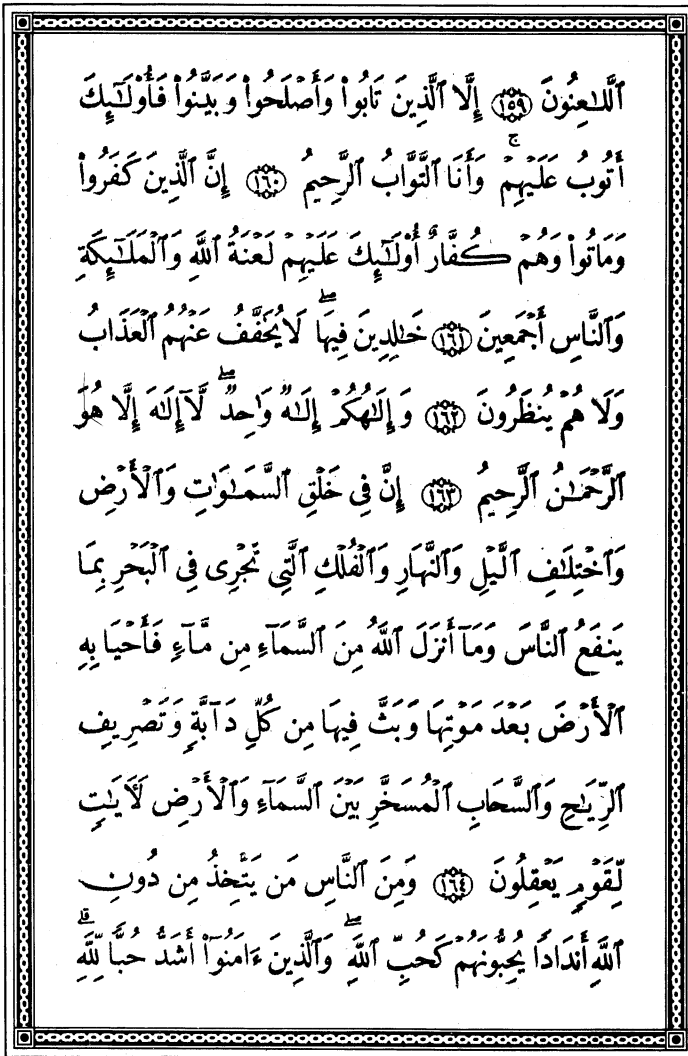 ٱللَّـٰعِنُونَ ١٥٩ إِلَّا ٱلَّذِينَ تَابُوا۟ وَأَصْلَحُوا۟ وَبَيَّنُوا۟ فَأُو۟لَـٰٓئِكَ
أَتُوبُ عَلَيْهِمْ ۚ وَأَنَا ٱلتَّوَّابُ ٱلرَّحِيمُ ١٦٠ إِنَّ ٱلَّذِينَ كَفَرُوا۟
وَمَاتُوا۟ وَهُمْ كُفَّارٌ أُو۟لَـٰٓئِكَ عَلَيْهِمْ لَعْنَةُ ٱللَّهِ وَٱلْمَلَـٰٓئِكَةِ
وَٱلنَّاسِ أَجْمَعِينَ ١٦١ خَـٰلِدِينَ فِيهَا ۖ لَا يُخَفَّفُ عَنْهُمُ ٱلْعَذَابُ
وَلَا هُمْ يُنظَرُونَ ١٦٢ وَإِلَـٰهُكُمْ إِلَـٰهٌ وَٰحِدٌ ۖ لَّآ إِلَـٰهَ إِلَّا هُوَ
ٱلرَّحْمَـٰنُ ٱلرَّحِيمُ ١٦٣ إِنَّ فِى خَلْقِ ٱلسَّمَـٰوَٰتِ وَٱلْأَرْضِ
وَٱخْتِلَـٰفِ ٱلَّيْلِ وَٱلنَّهَارِ وَٱلْفُلْكِ ٱلَّتِى تَجْرِى فِى ٱلْبَحْرِ بِمَا
يَنفَعُ ٱلنَّاسَ وَمَآ أَنزَلَ ٱللَّهُ مِنَ ٱلسَّمَآءِ مِن مَّآءٍ فَأَحْيَا بِهِ
ٱلْأَرْضَ بَعْدَ مَوْتِهَا وَبَثَّ فِيهَا مِن كُلِّ دَآبَّةٍ وَتَصْرِيفِ
ٱلرِّيَـٰحِ وَٱلسَّحَابِ ٱلْمُسَخَّرِ بَيْنَ ٱلسَّمَآءِ وَٱلْأَرْضِ لَـَٔايَـٰتٍ
لِّقَوْمٍ يَعْقِلُونَ ١٦٤ وَمِنَ ٱلنَّاسِ مَن يَتَّخِذُ مِن دُونِ
ٱللَّهِ أَندَادًا يُحِبُّونَهُمْ كَحُبِّ ٱللَّهِ ۖ وَٱلَّذِينَ ءَامَنُوٓا۟ أَشَدُّ حُبًّا لِّلَّهِ ۗ